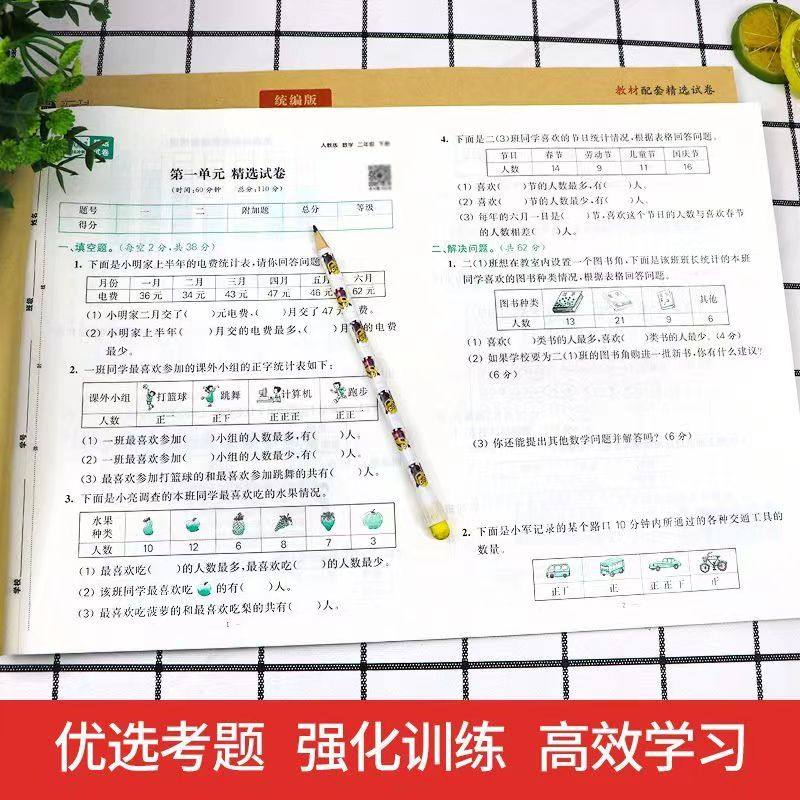 统编版
教材配套精选试卷
试卷
人教版 数学 二年级 下册
第一单元 精选试卷
(时间:60分钟 总分:110分)
题号 一 二 附加题 总分 等级
得分
一、填空题。(每空2分,共38分)
1. 下面是小明家上半年的电费统计表,请你回答问题
月份 一月 二月 三月 四月 五月 六月
电费 36元 34元 43元 47元 46元 62元
(1) 小明家二月交了( )元电费,( )月交了47元
(2) 小明家上半年( )月交的电费最多,( )月 的电费
最少。
2. 一班同学最喜欢参加的课外小组的正字统计表如下:
课外小组 打篮球 跳舞 计算机 跑步
人数 正一 正下 正正正 正正一
(1) 一班最喜欢参加( )小组的人数最多,有( )人。
(2) 一班最喜欢参加( )小组的人数最少,有( )人。
(3) 最喜欢参加打篮球的和最喜欢参加跳舞的共有( )人。
3. 下面是小亮调查的本班同学最喜欢吃的水果情况。
水果
种类
人数 10 12 6 8 7 3
(1) 最喜欢吃( )的人数最多,最喜欢吃( )的人数最少。
(2) 该班同学最喜欢吃 的有( )人。
(3) 最喜欢吃菠萝的和最喜欢吃梨的共有( )人。
学校
学号
班级
姓名
4. 下面是二(3)班同学喜欢的节日统计情况,根据表格回答问题。
节日 春节 劳动节 儿童节 国庆节
人数 14 9 11 16
(1) 喜欢( )节的人数最多,有( )人。
(2) 喜欢( )节的人数最少,有( )人。
(3) 每年的六月一日是( )节,喜欢这个节日的人数与喜欢春节
的人数相差( )人。
二、解决问题。(共62分)
1. 二(1)班想在教室内设置一个图书角,下面是该班班长统计的本班
同学喜欢的图书种类情况,根据表格回答问题。
图书种类 其他
人数 13 21 9 6
(1) 喜欢( )类书的人最多,喜欢( )类书的人最少。(4分)
(2) 如果学校要为二(1)班的图书角购进一批新书,你有什么建议?
(6分)
(3) 你还能提出其他数学问题并解答吗?(6分)
2. 下面是小军记录的某个路口10分钟内所通过的各种交通工具的
数量。
正 正 正正
优选考题 强化训练 高效学习